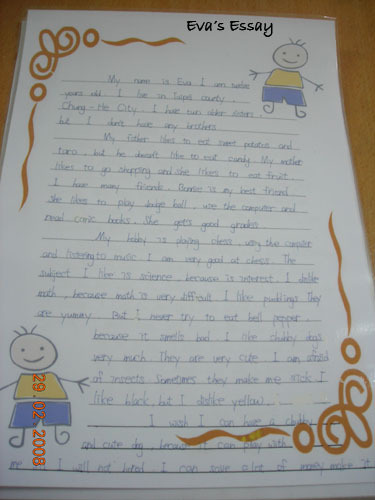 Eva's Essay
My name is Eva. I am twelve
years old. I live in Taipei county,
Chung-He City. I have two older sisters,
but I don't have any brothers.
My father likes to eat sweet potatos and
taro, but he doesn't like to eat candy. My mother
likes to go shopping and she likes to eat fruit.
I have many friends. is my best friend.
She likes to play dodge ball, use the computer and
read comic books. She get's good grades.
My hobby is playing chess, using the computer
and listening to music. I am very good at chess. The
subject I like is science, because is interest. I dislike
math, because math is very difficult. I like puddings. They
are yummy. But I never try to eat bell pepper,
because it smells bad. I like chubby dogs
very much. They are very cute. I am afraid
of insects. Sometimes they make me sick. I
like black, but I dislike yellow.
I wish I can have a chubby
and cute dog, because it can play with
me and I will not bored. I can save a lot of money make it
29.02.2008